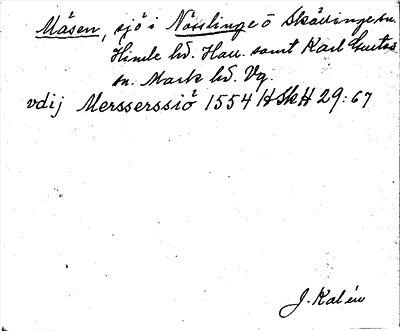 Måsen, sjö i Nösslinge o Skällinge sn.
Himle hd. Hall. samt Karl Gustav
sn. Mark hd. Vg.
vdij Mersserssiö 1554 HSkH 29:67
J. Kalén